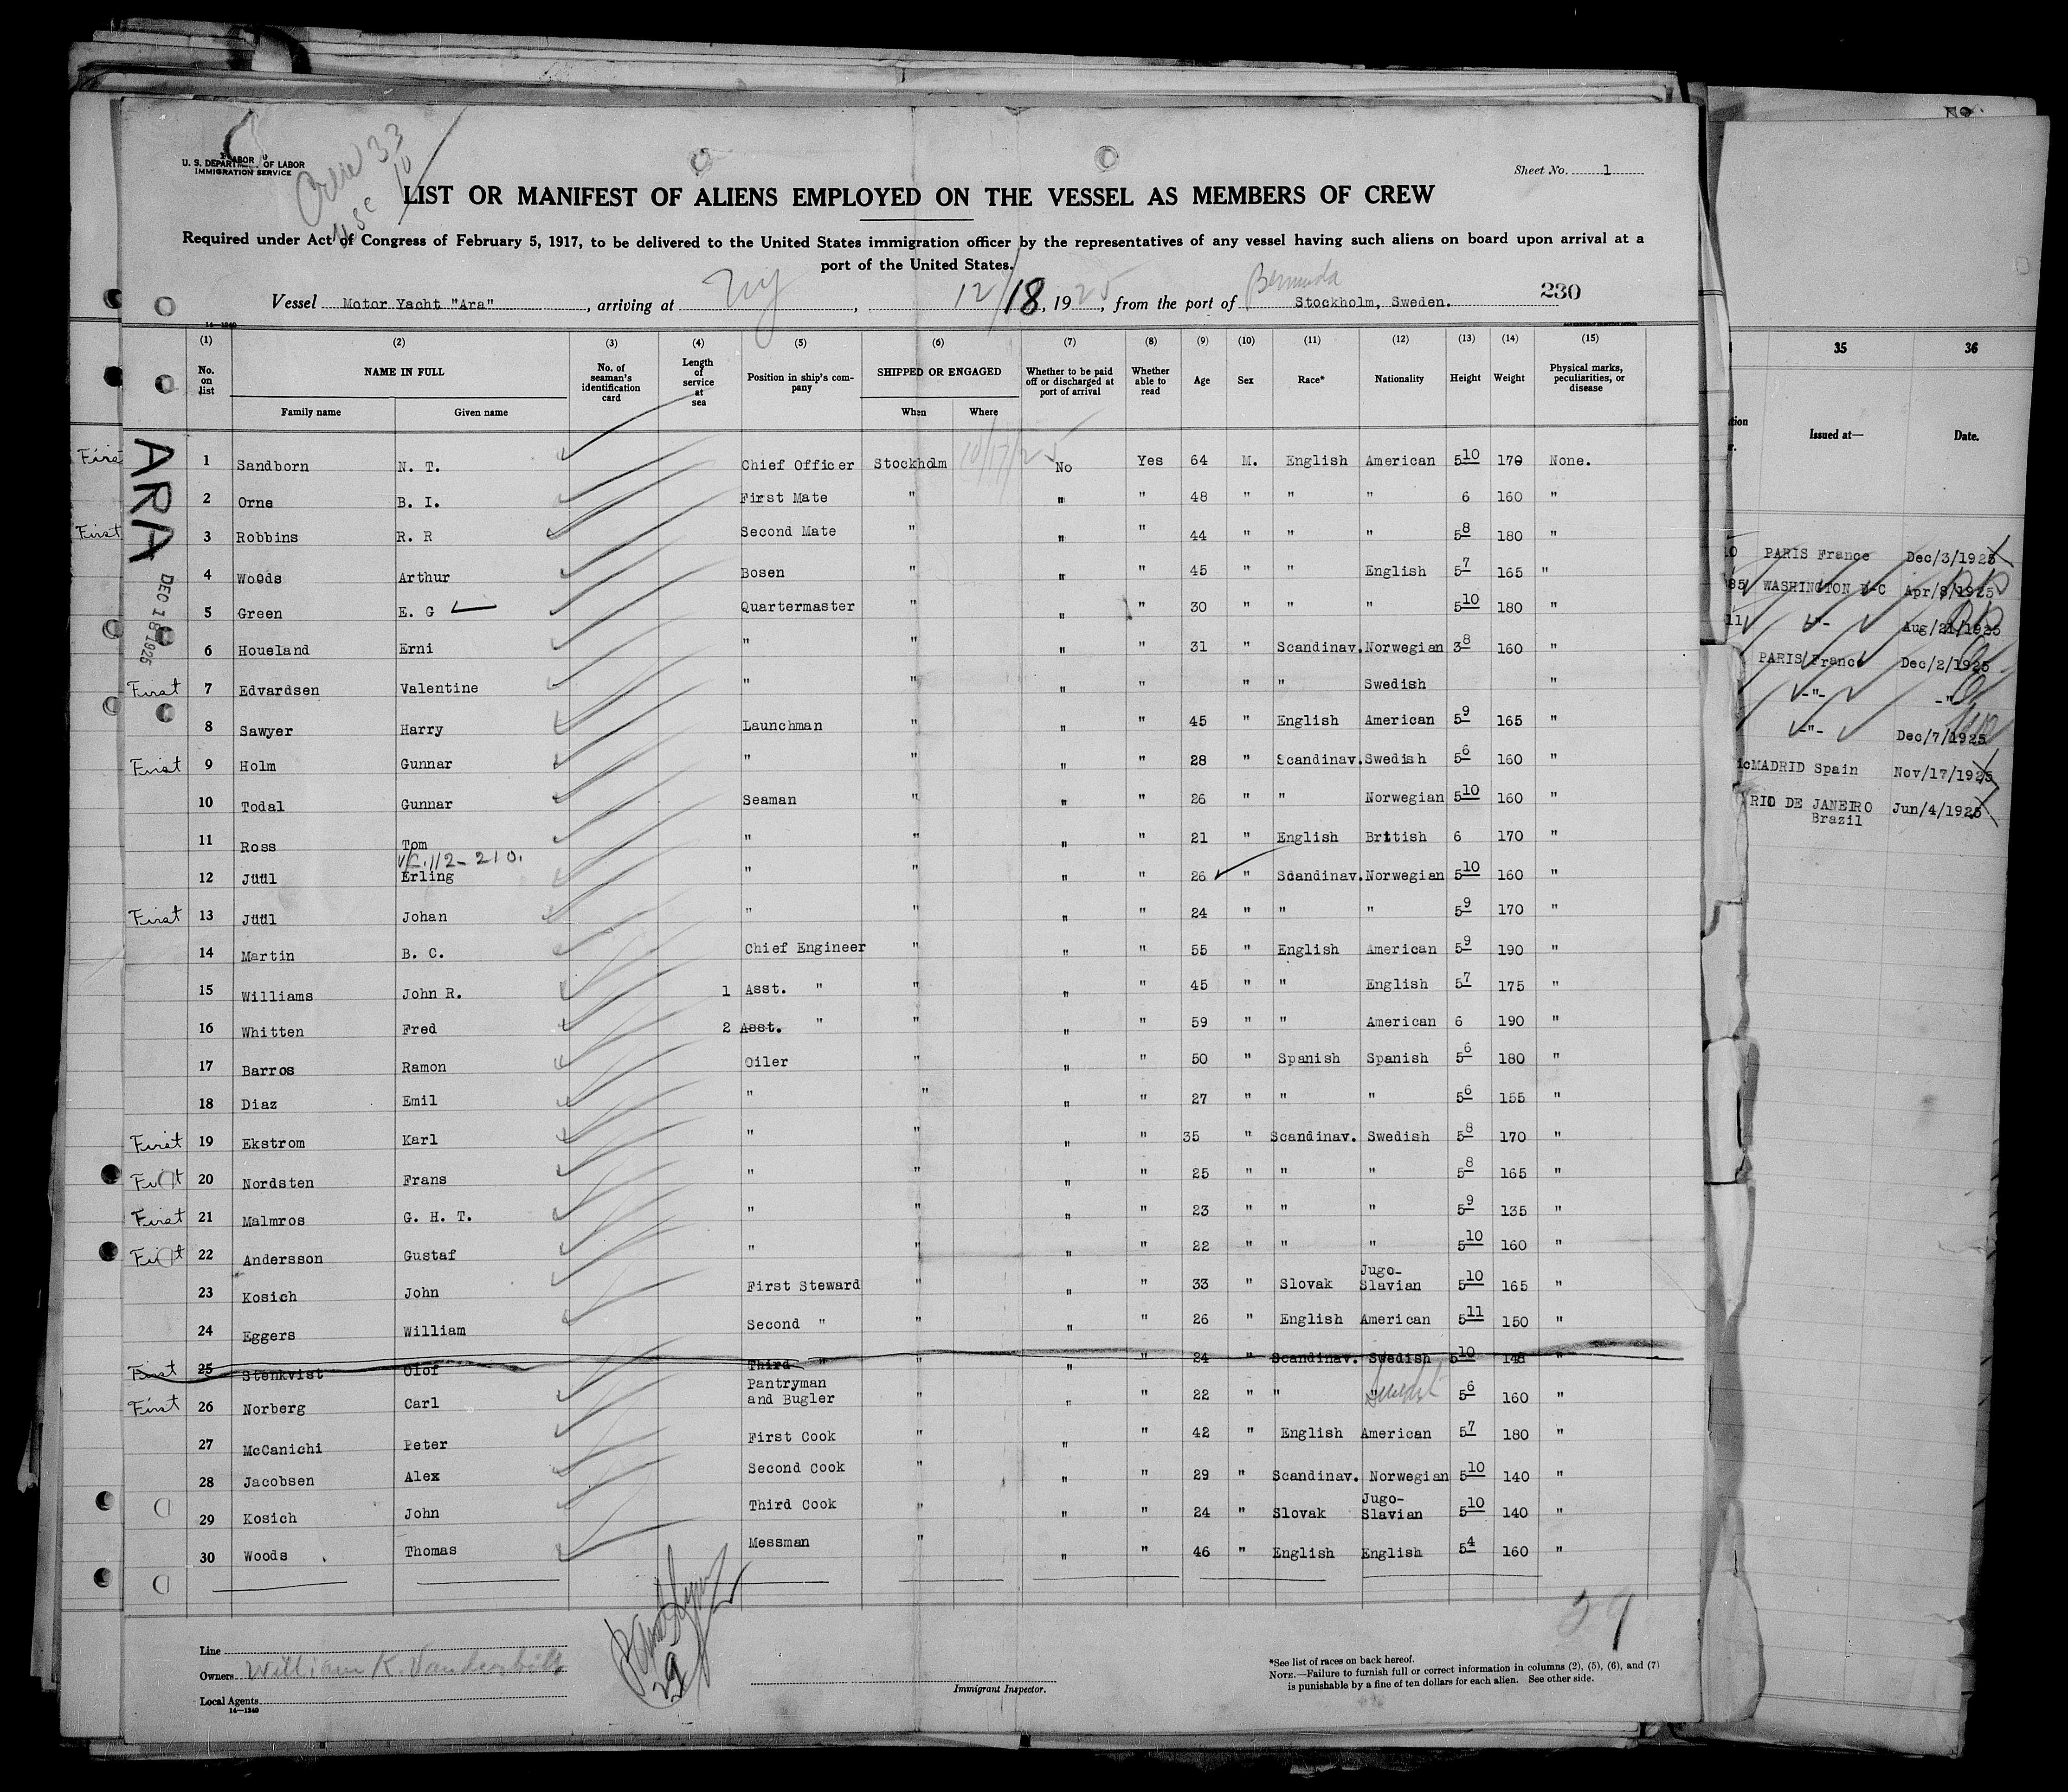 U. S. DEPARTMENT OF LABOR
IMMIGRATION SERVICE
Crew 33
USC 10
Sheet No. 1
LIST OR MANIFEST OF ALIENS EMPLOYED ON THE VESSEL AS MEMBERS OF CREW
Required under Act of Congress of February 5, 1917, to be delivered to the United States immigration officer by the representatives of any vessel having such aliens on board upon arrival at a
port of the United States.
Bermuda
Vessel Motor Yacht "Ara", arriving at NY, 12/18, 1925, from the port of Stockholm, Sweden. 230
14-1240
(1) (2) (3) (4) (5) (6) (7) (8) (9) (10) (11) (12) (13) (14) (15)
No. on list NAME IN FULL Family name Given name No. of seaman's identification card Length of service at sea Position in ship's company SHIPPED OR ENGAGED When Where Whether to be paid off or discharged at port of arrival Whether able to read Age Sex Race* Nationality Height Weight Physical marks, peculiarities, or disease
10/17/25
ARA
DEC 18 1925
First 1 Sandborn N. T. Chief Officer Stockholm No Yes 64 M. English American 5 10 170 None.
2 Orne B. I. First Mate " " " 48 " " " 6 160 "
First 3 Robbins R. R Second Mate " " " 44 " " " 5 8 180 "
4 Woods Arthur Bosen " " " 45 " " English 5 7 165 "
5 Green E. G Quartermaster " " " 30 " " " 5 10 180 "
6 Houeland Erni " " " " 31 " Scandinav. Norwegian 3 8 160 "
First 7 Edvardsen Valentine " " " " " " Swedish "
8 Sawyer Harry Launchman " " " 45 " English American 5 9 165 "
First 9 Holm Gunnar " " " " 28 " Scandinav. Swedish 5 6 160 "
10 Todal Gunnar Seaman " " " 26 " " Norwegian 5 10 160 "
11 Ross Tom " " " " 21 " English British 6 170 "
12 Jüül Erling " " " " 26 " Scandinav. Norwegian 5 10 160 "
First 13 Jüül Johan " " " " 24 " " " 5 9 170 "
14 Martin B. C. Chief Engineer " " " 55 " English American 5 9 190 "
15 Williams John R. 1 Asst. " " " " 45 " " English 5 7 175 "
16 Whitten Fred 2 Asst. " " " " 59 " " American 6 190 "
17 Barros Ramon Oiler " " " 50 " Spanish Spanish 5 6 180 "
18 Diaz Emil " " " " 27 " " " 5 6 155 "
First 19 Ekstrom Karl " " " " 35 " Scandinav. Swedish 5 8 170 "
First 20 Nordsten Frans " " " " 25 " " " 5 8 165 "
First 21 Malmros G. H. T. " " " " 23 " " " 5 9 135 "
First 22 Andersson Gustaf " " " " 22 " " " 5 10 160 "
23 Kosich John First Steward " " " 33 " Slovak Jugo-Slavian 5 10 165 "
24 Eggers William Second " " " " 26 " English American 5 11 150 "
First 25 Stenkvist Olof Third " " " " 24 " Scandinav. Swedish 5 10 148 "
First 26 Norberg Carl Pantryman and Bugler " " " 22 " " " Swedish 5 6 160 "
27 McCanichi Peter First Cook " " " 42 " English American 5 7 180 "
28 Jacobsen Alex Second Cook " " " 29 " Scandinav. Norwegian 5 10 140 "
29 Kosich John Third Cook " " " 24 " Slovak Jugo-Slavian 5 10 140 "
30 Woods Thomas Messman " " " 46 " English English 5 4 160 "
29
Line
Owners William K. Vanderbilt
Local Agents
14-1240
29
Immigrant Inspector.
*See list of races on back hereof.
NOTE.—Failure to furnish full or correct information in columns (2), (5), (6), and (7)
is punishable by a fine of ten dollars for each alien. See other side.
35 36
Issued at— Date.
PARIS France Dec/3/1925
WASHINGTON D-C Apr/8/1925
-"- Aug/21/1925
PARIS France Dec/2/1925
-"- -"-
-"- Dec/7/1925
MADRID Spain Nov/17/1925
RIO DE JANEIRO Jun/4/1925
Brazil